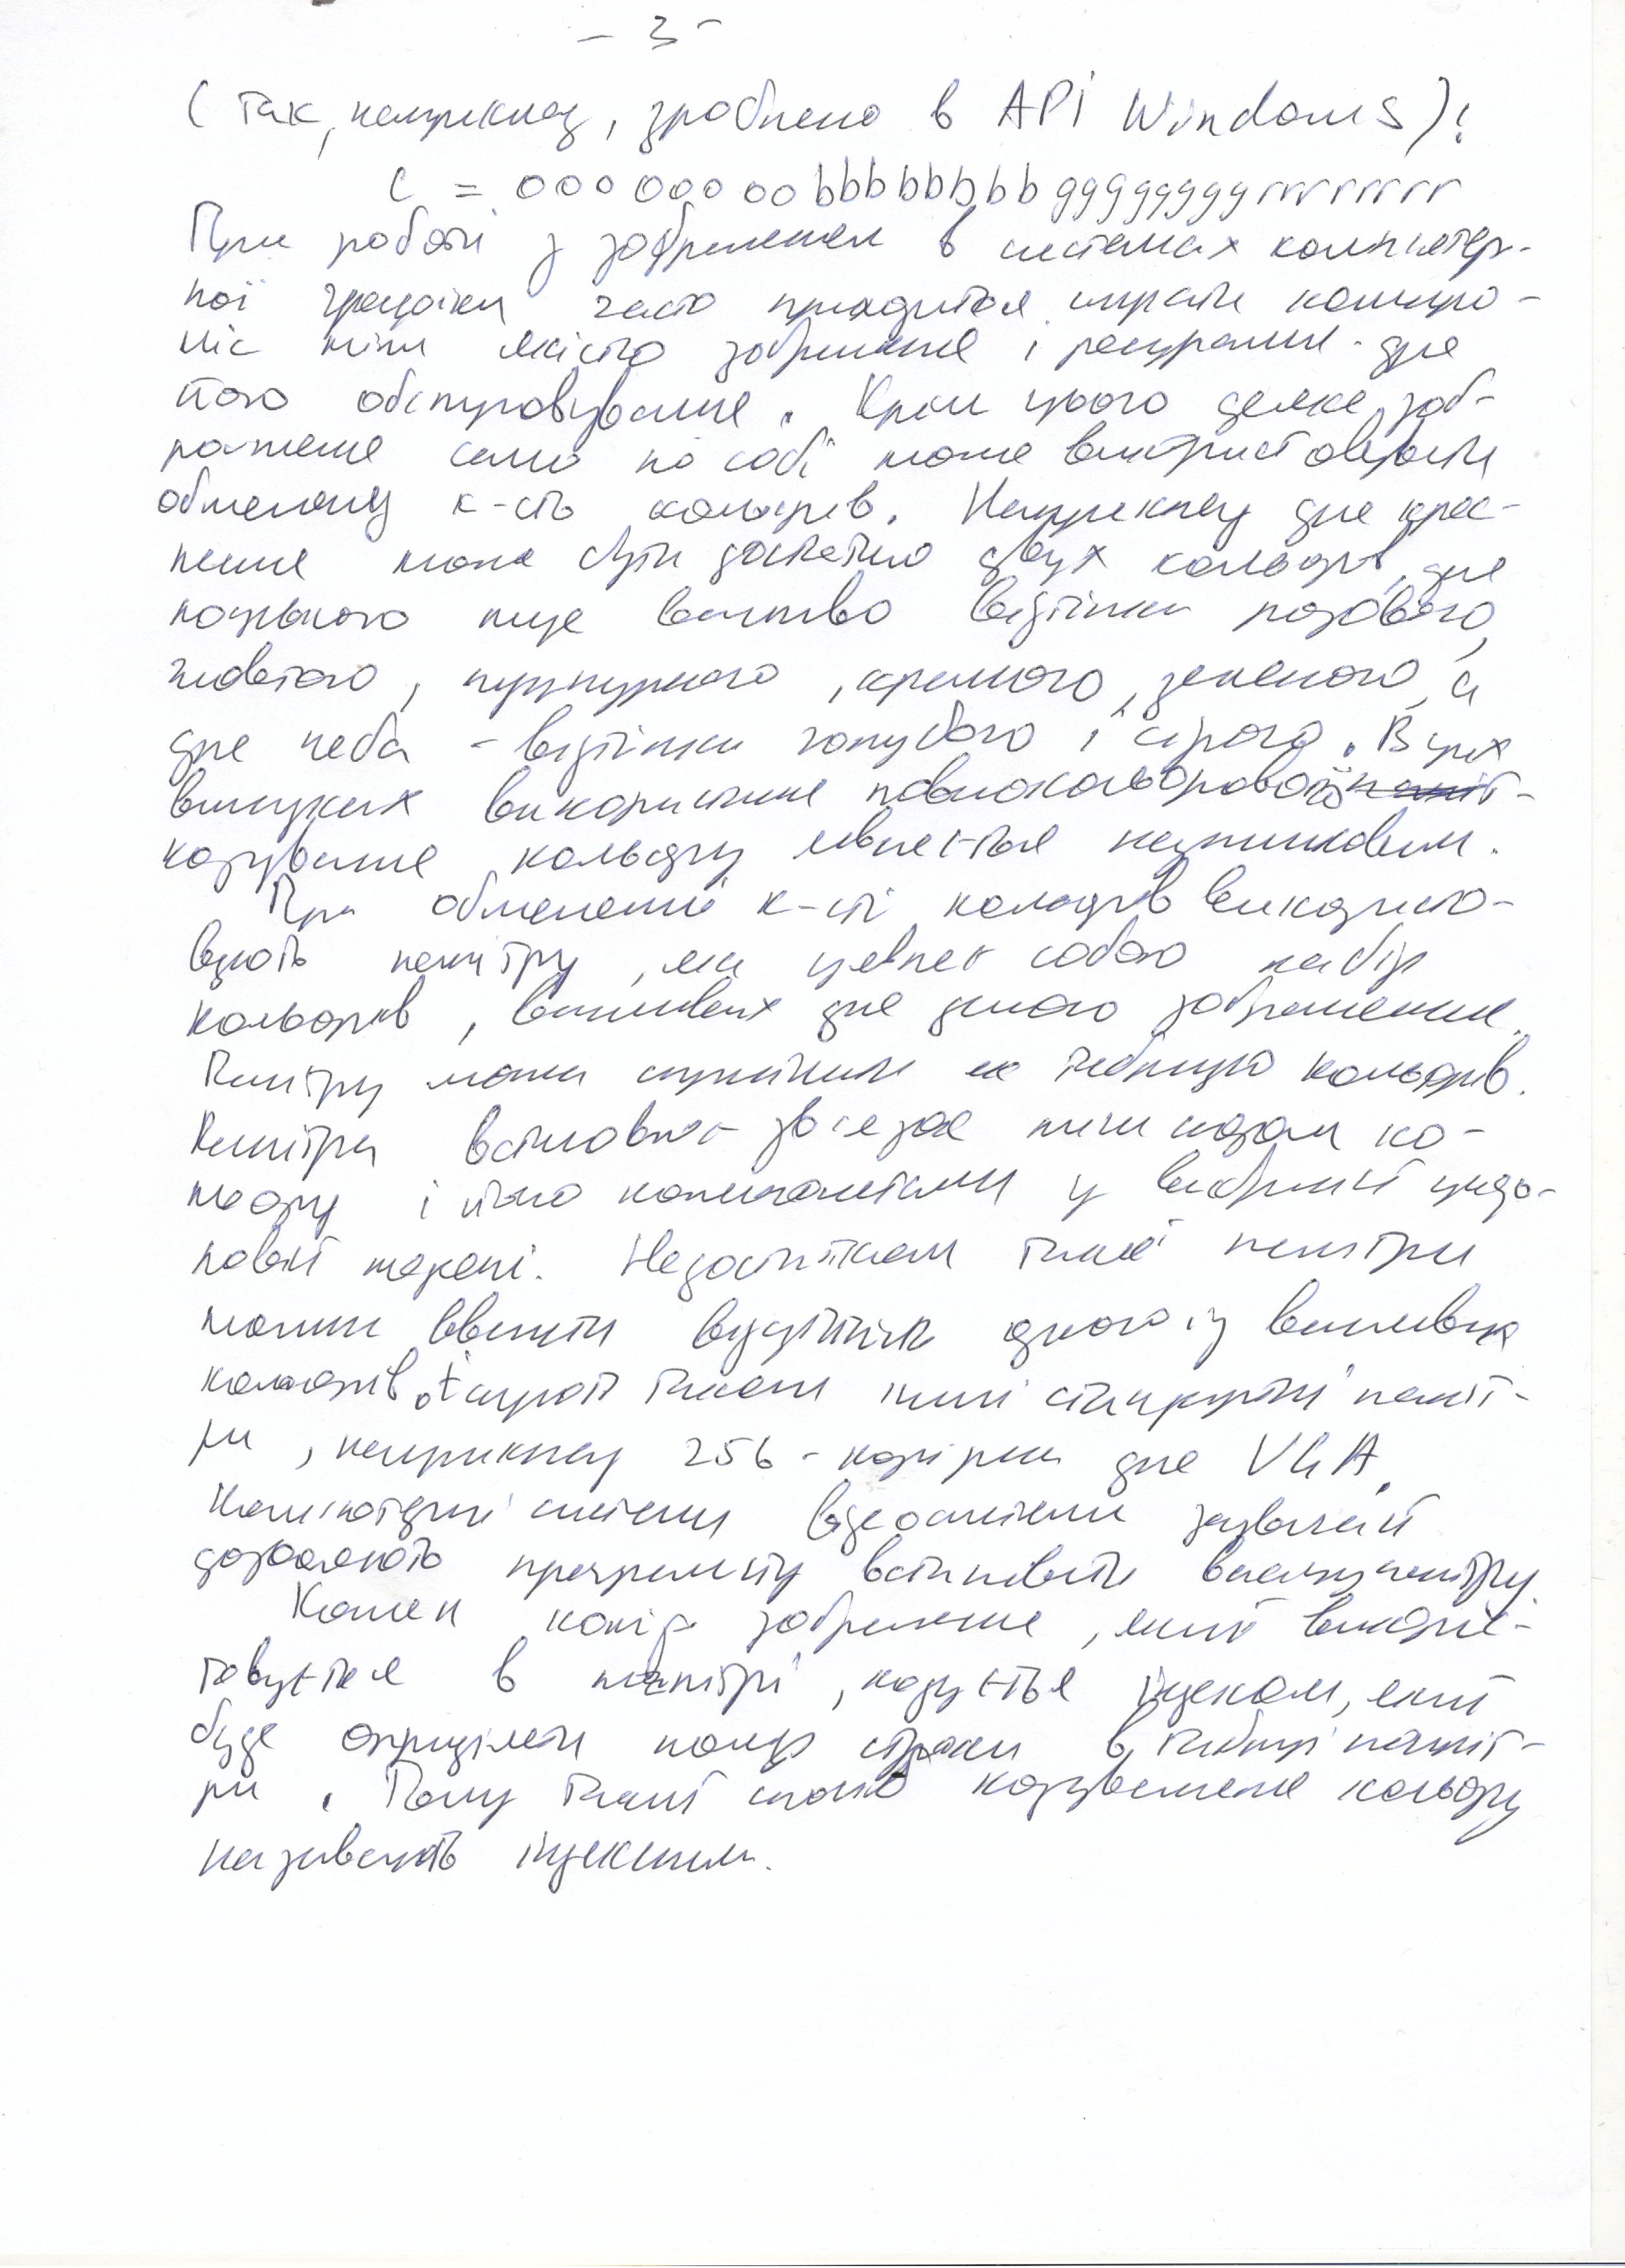 - 3 -
(так, наприклад, зроблено в АРІ Windows):
C = 00000000bbbbbbbbggggggggrrrrrrrr
При роботі з зображеням в системах комп'ютер-
ної графіки часто приходится шукати компро-
міс між якістю зображення і ресурсами для
його обслуговування. Крім цього деяке зоб-
раження само по собі може використовувати
обмежену к-сть кольорів. Наприклад для крес-
лення може бути достатньо двух кольорів, для
людського лиця важливо відтінки розового,
жовтого, пурпурного, красного, зеленого, а
для неба - відтінки голубого і сірого. В цих
випадках використання повнокольорового
кодування кольору являється надлишковим.
При обмеженні к-сті кольорів використо-
вують палітру, яка являє собою набір
кольорів, важливих для даного зображення.
Палітру можна сприймати як таблицю кольорів.
Палітра встановлює зв'язок між кодом ко-
льору і його компонентами у вибраній кольо-
ровій моделі. Недостатком такої палітри
можна вважати відсутність одного із важливих
кольорів. Існують також інші стандартні паліт-
ри, наприклад 256-колірна для VGA.
Комп'ютерні системи відеосистеми зазвичай
дозволяють програмісту встановити власну палітру.
Кожен колір зображення, який викорис-
товується в палітрі, кодується індексом, який
буде опреділяти номер строки в таблиці паліт-
ри. Тому такий спосіб кодування кольору
називають індексним.